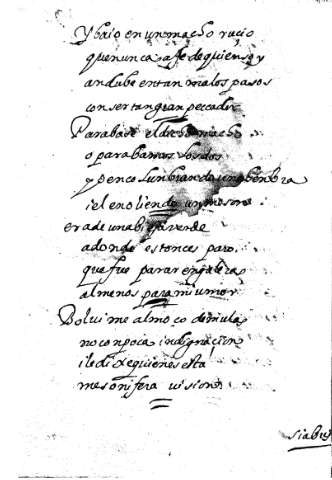 Y baio en un macho ruçio
que nunca a fe de quien soy
andube en tan malos pasos
con ser tan gran peccador
Parabase el dicho macho
o parabamos los dos
y en columbrando una hembra
i el en oliendo un meson
era de una bieja verde
adonde estonces paro
que fue parar en galera
al menos para mi umor
Bolvime al moço de mula
no con poca indignaçion
i le di xe quien es esta
mesonifera vision